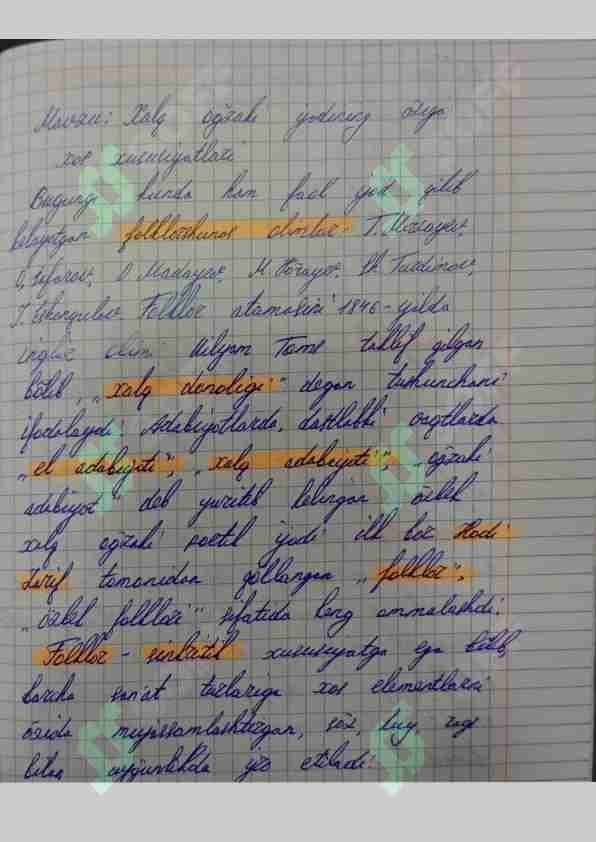 Mavzu: Xalq og'zaki ijodining o'ziga
xos xususiyatlari
Bugungi kunda ham faol ijod qilib
kelayotgan folklorshunos olimlar T. Mirzayev,
O. Safarov, O Madayev, M Jo'rayev, Sh. Turdimov,
J. Eshonqulov Folklor atamasini 1846-yilda
ingliz olimi Uilyam Toms taklif qilgan
bo'lib, „xalq donoligi" degan tushunchani
ifodalaydi. Adabiyotlarda, dastlabki vaqtlarda
„el adabiyoti", „xalq adabiyoti", „og'zaki
adabiyot" deb yuritib kelingan o'zbek
xalq og'zaki poetik ijodi ilk bor Hodi
Zarif tomonidan qo'llangan „folklor",
„o'zbek folklori" sifatida keng ommalashdi.
Folklor - sinkretik xususiyatga ega bo'lib,
barcha san'at turlariga xos elementlarni
o'zida mujassamlashtirgan, so'z, kuy, raqs
bilan uyg'unlikda ijro etiladi.